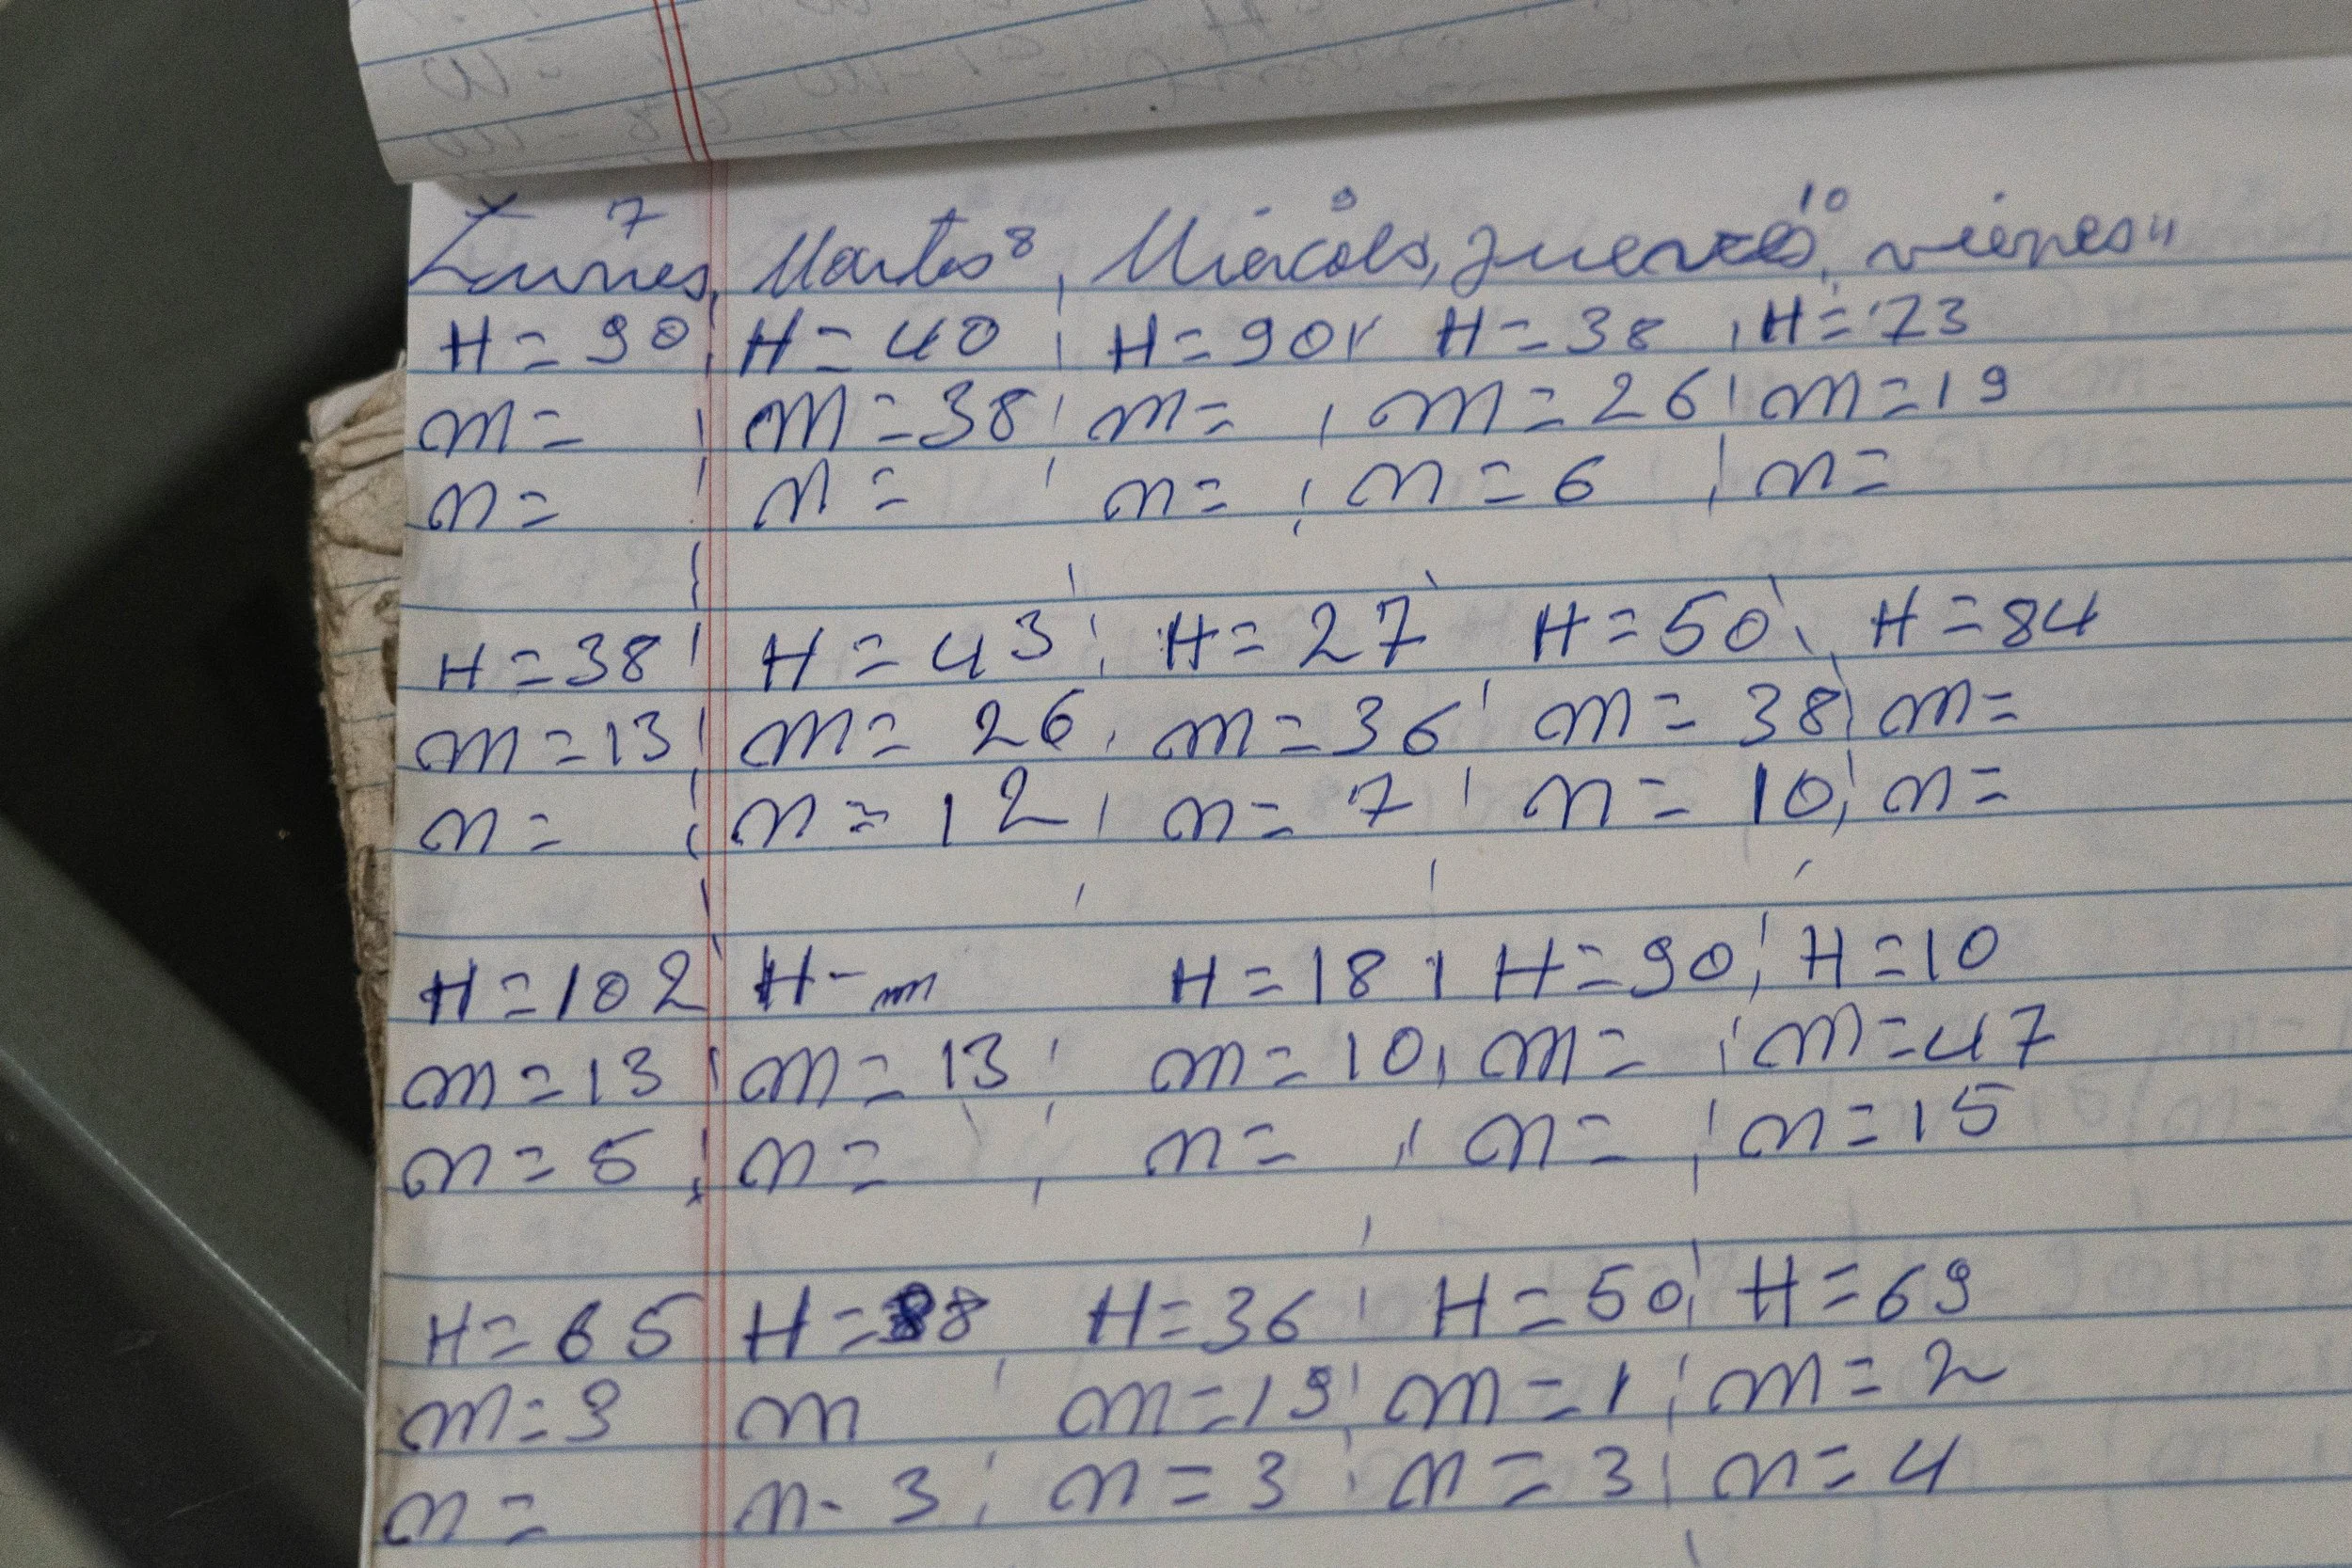 Lunes 7, Martes 8, Miercols 9, jueves 10, vienes 11
H=90, H=40, H=90, H=38, H=73
m=, m=38, m=, m=26, m=19
n=, n=, n=, n=6, n=
H=38, H=43, H=27, H=50, H=84
m=13, m=26, m=36, m=38, m=
n=, n=12, n=7, n=10, n=
H=102, H-m, H=18, H=90, H=10
m=13, m=13, m=10, m=, m=47
n=5, n=, n=, n=, n=15
H=65, H=38, H=36, H=50, H=69
m=3, m, m=19, m=1, m=2
n=, n-3, n=3, n=3, n=4